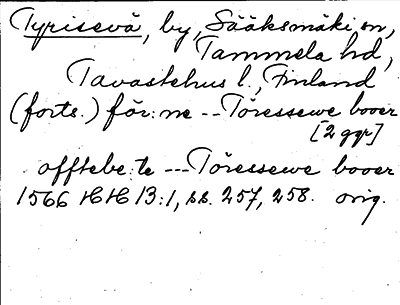 Tyrisevä, by, Sääksmäki sn,
Tammela hd,
Tavastehus l., Finland
(forts.) för: ne -- Töressewe booer
[2 ggr]
offtebe: te --- Töressewe booer
1566 HH 13:1, ss. 257, 258. orig.